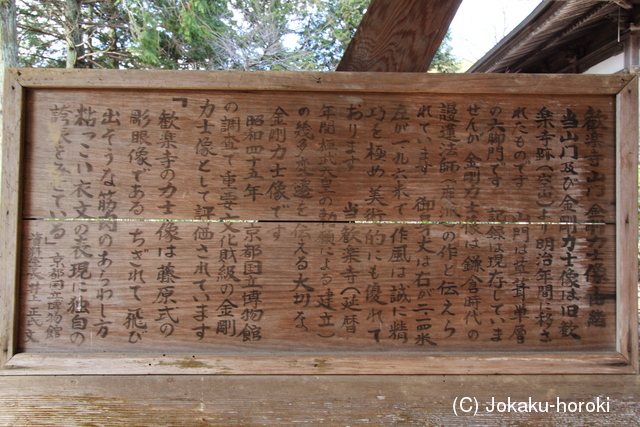 歓楽寺山門 金剛力士像由緒
当山門及び金剛力士像は旧歓
楽寺跡(室山)より明治年間に移さ
れたものです 山門は萱葺単層
の六脚門です 記録は現存してま
せんが金剛力士像は鎌倉時代の
法師の作と伝えら
れています 御身丈は右が二、四米
左が一、九六米で作風は誠に精
巧を極め美術的にも優れて
おります 当歓楽寺(延暦
年間桓武天皇の勅願による建立)
の後 を伝える大切な
金剛力士像です
昭和四十五年 京都国立博物館
の調査で重要文化財級の金剛
力士像として評価されています
「歓楽寺の力士像は藤原式の
彫眼像である ちぎれて飛び
出そうな筋肉のあらわし方
粘っこい衣文の表現に独自の
誇張をみせている」
京都国立博物館
井上正氏文
(C) Jokaku-horoki